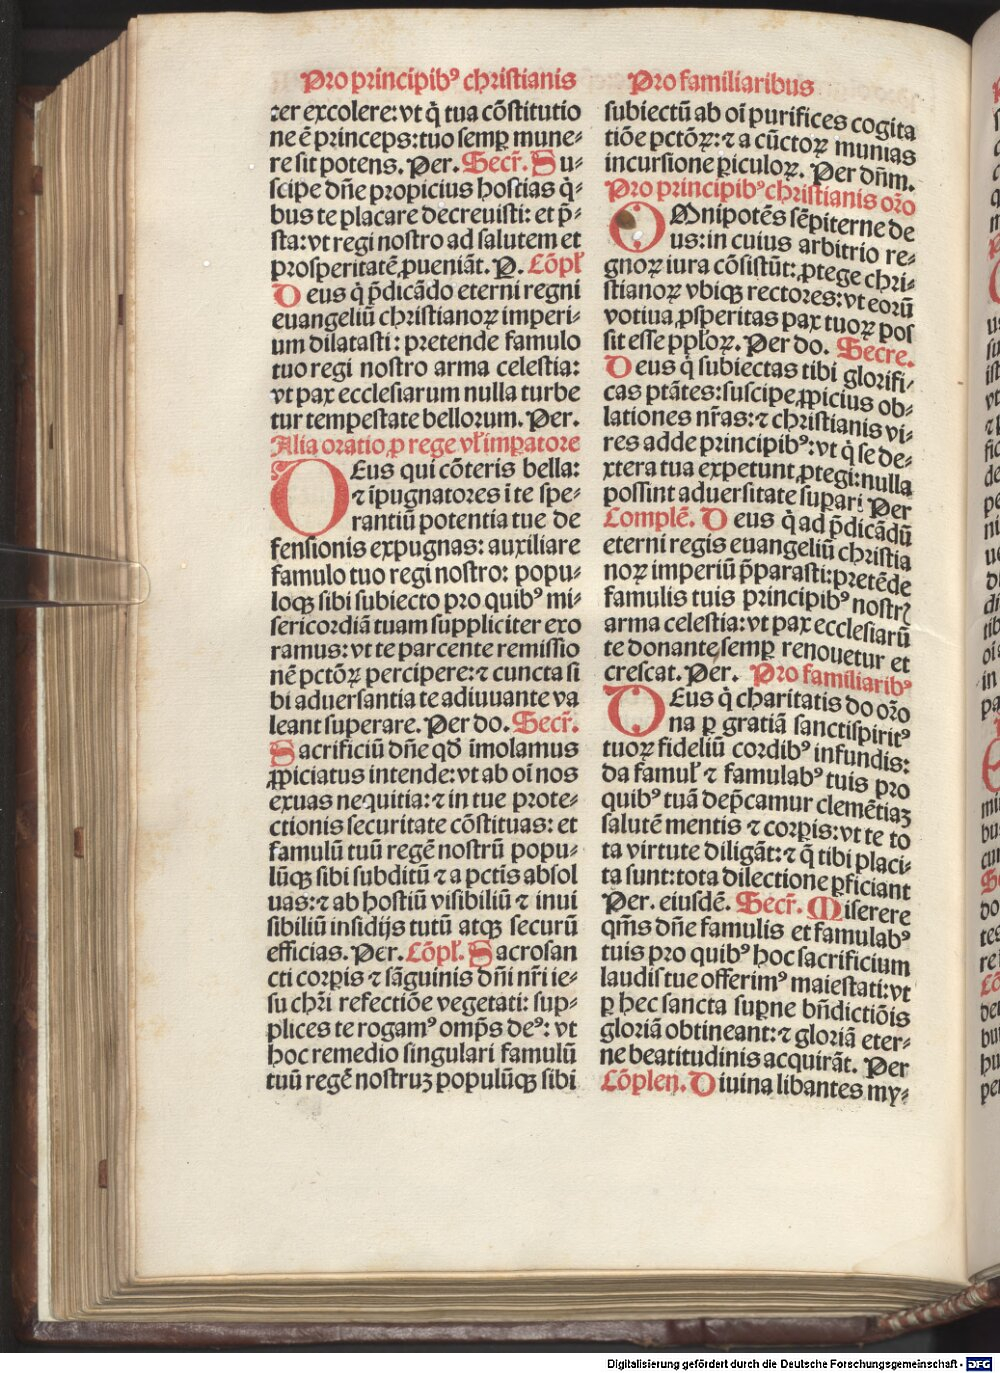 Pro principibꝰ christianis
cer excolere: vt q̇ tua cōstitutio
ne ē princeps: tuo semꝑ mune-
re sit potens. Per. Secr̄. Su-
scipe dn̄e propicius hostias q̇-
bus te placare decreuisti: et p̄-
sta: vt regi nostro ad salutem et
prosperitatē ꝓueniāt. P. Cōpl̄
Deus q̇ p̄dicādo eterni regni
euangeliū christianoꝝ imperi-
um dilatasti: pretende famulo
tuo regi nostro arma celestia:
vt pax ecclesiarum nulla turbe
tur tempestate bellorum. Per.
Alia oratio ꝓ rege vl̄ imꝑatore
DEus qui cōteris bella:
⁊ īpugnatores ī te spe-
rantiū potentia tue de
fensionis expugnas: auxiliare
famulo tuo regi nostro: popu-
loqꝫ sibi subiecto pro quibꝰ mi-
sericordiā tuam suppliciter exo
ramus: vt te parcente remissio
nē pctōꝝ percipere: ⁊ cuncta si
bi aduersantia te adiuuante va
leant superare. Per do. Secr̄.
Sacrificiū dn̄e qd̄ īmolamus
ꝓpiciatus intende: vt ab oī nos
exuas nequitia: ⁊ in tue prote-
ctionis securitate cōstituas: et
famulū tuū regē nostrū popu-
lūqꝫ sibi subditū ⁊ a pctis absol
uas: ⁊ ab hostiū visibiliū ⁊ inui
sibiliū insidijs tutū atqꝫ securū
efficias. Per. Cōpl̄. Sacrosan
cti corpis ⁊ sāguinis dn̄i nr̄i ie-
su chr̄i refectiōe vegetati: sup-
plices te rogamꝰ omp̄s deꝰ: vt
hoc remedio singulari famulū
tuū regē nostruꝫ populūqꝫ sibi
Pro familiaribus
subiectū ab oī purifices cogita
tiōe pctōꝝ: ⁊ a cūctoꝝ munias
incursione ꝑiculoꝝ. Per dn̄m.
Pro principibꝰ christianis or̄o
OMnipotēs sēpiterne de
us: in cuius arbitrio re-
gnoꝝ iura cōsistūt: ꝓtege chri-
stianoꝝ vbiqꝫ rectores: vt eorū
votiua ꝓsperitas pax tuoꝝ pos
sit esse pploꝝ. Per do. Secre.
Deus q̇ subiectas tibi glorifi-
cas ptātes: suscipe ꝓpicius ob-
lationes nr̄as: ⁊ christianis vi-
res adde principibꝰ: vt q̇ se de-
xtera tua expetunt ꝓtegi: nulla
possint aduersitate supari Per
Complē. Deus q̇ ad p̄dicādū
eterni regis euangeliū christia
noꝝ imperiū p̄parasti: pretēde
famulis tuis principibꝰ nostrꝭ
arma celestia: vt pax ecclesiarū
te donante semꝑ renouetur et
crescat. Per. Pro familiaribꝰ
DEus q̇ charitatis do or̄o
na ꝑ gratiā sanctispiritꝰ
tuoꝝ fideliū cordibꝰ infundis:
da famul̄ ⁊ famulabꝰ tuis pro
quibꝰ tuā dep̄camur clemētiaꝫ
salutē mentis ⁊ corpis: vt te to
ta virtute diligāt: ⁊ q̄ tibi placi-
ta sunt: tota dilectione ꝑficiant
Per. eiusdē. Secr̄. Miserere
qm̄s dn̄e famulis et famulabꝰ
tuis pro quibꝰ hoc sacrificium
laudis tue offerimꝰ maiestati: vt
ꝑ hec sancta supne bn̄dictiōis
gloriā obtineant: ⁊ gloriā eter-
ne beatitudinis acquirāt. Per
Cōplen. Diuina libantes my-
Digitalisierung gefördert durch die Deutsche Forschungsgemeinschaft - DFG